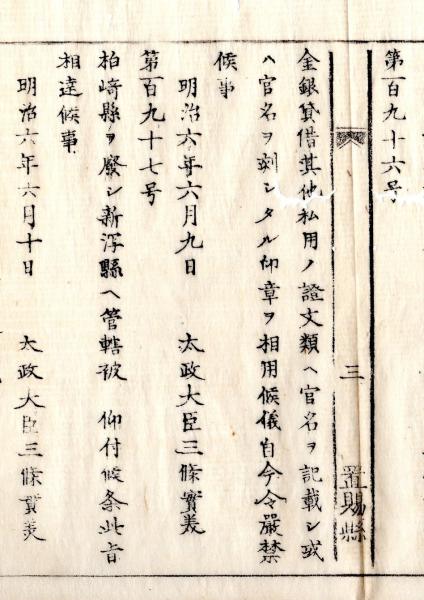 第百九十六号
三
置賜縣
金銀貸借其他私用ノ證文類ヘ官名ヲ記載シ或
ハ官名ヲ刻シタル印章ヲ相用候儀自今令嚴禁
候事
明治六年六月九日 太政大臣三條實美
第百九十七号
柏崎縣ヲ廢シ新潟縣ヘ管轄被 仰付候条此旨
相達候事
明治六年六月十日 太政大臣三條實美